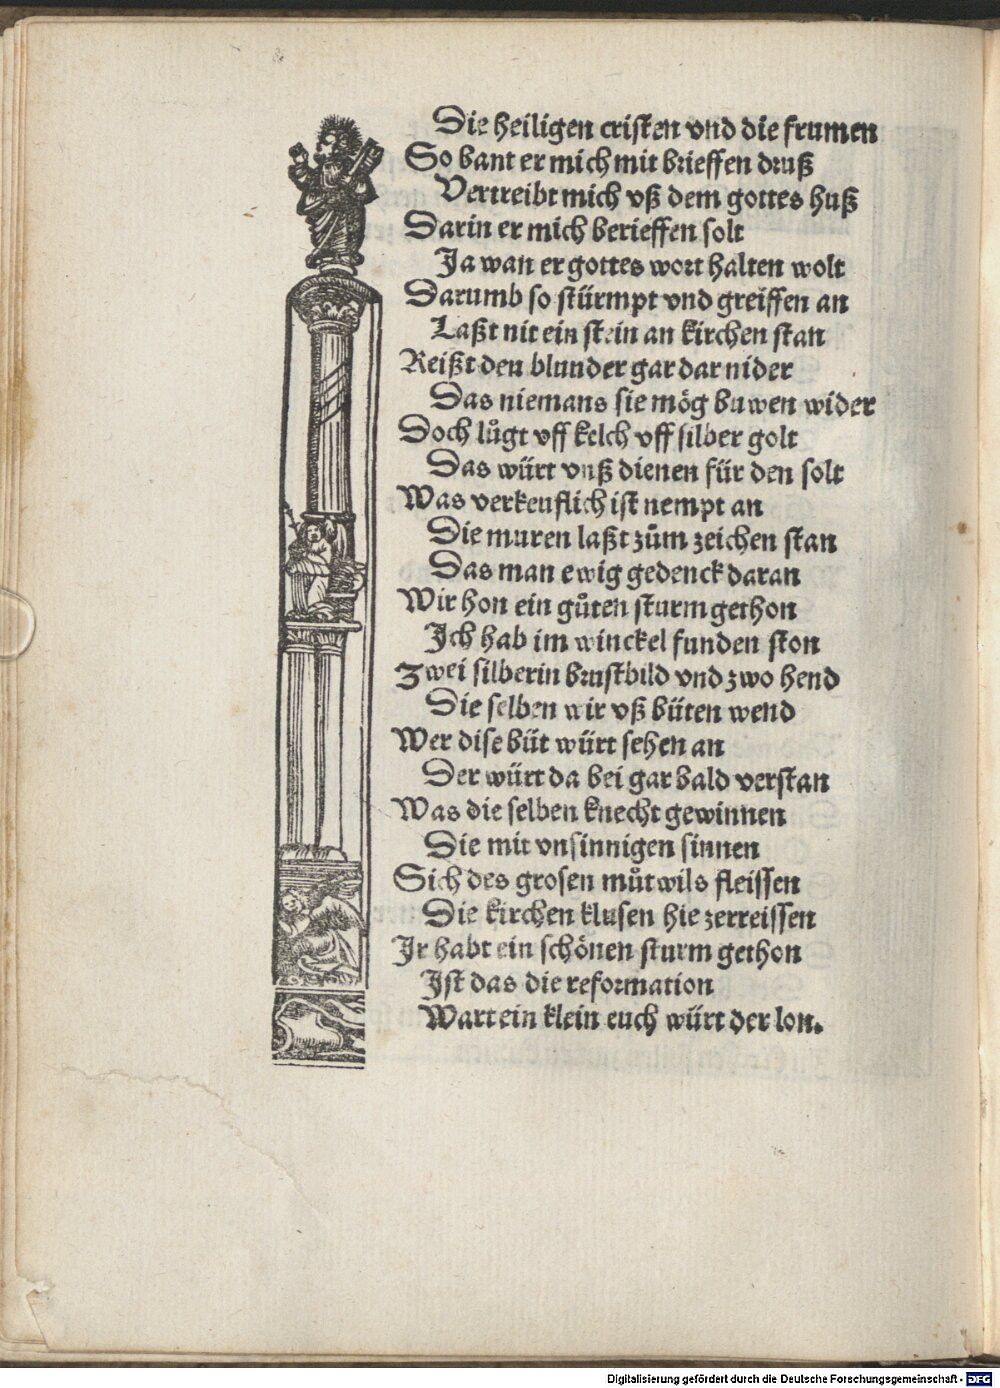 Die heiligen cristen vnd die frumen
So bant er mich mit brieffen druß
Vertreibt mich vß dem gottes huß
Darin er mich berieffen solt
Ja wan er gottes wort halten wolt
Darumb so stürmpt vnd greiffen an
Laßt nit ein stein an kirchen stan
Reißt den blunder gar dar nider
Das niemans sie mög buwen wider
Doch lůgt vff kelch vff silber golt
Das würt vnß dienen für den solt
Was verkeuflich ist nempt an
Die muren laßt zům zeichen stan
Das man ewig gedenck daran
Wir hon ein gůten sturm gethon
Ich hab im winckel funden ston
Zwei silberin brustbild vnd zwo hend
Die selben wir vß büten wend
Wer dise büt würt sehen an
Der würt da bei gar bald verstan
Was die selben knecht gewinnen
Die mit vnsinnigen sinnen
Sich des grosen můtwils fleissen
Die kirchen klusen hie zerreissen
Ir habt ein schönen sturm gethon
Ist das die reformation
Wart ein klein euch würt der lon.
Digitalisierung gefördert durch die Deutsche Forschungsgemeinschaft - DFG